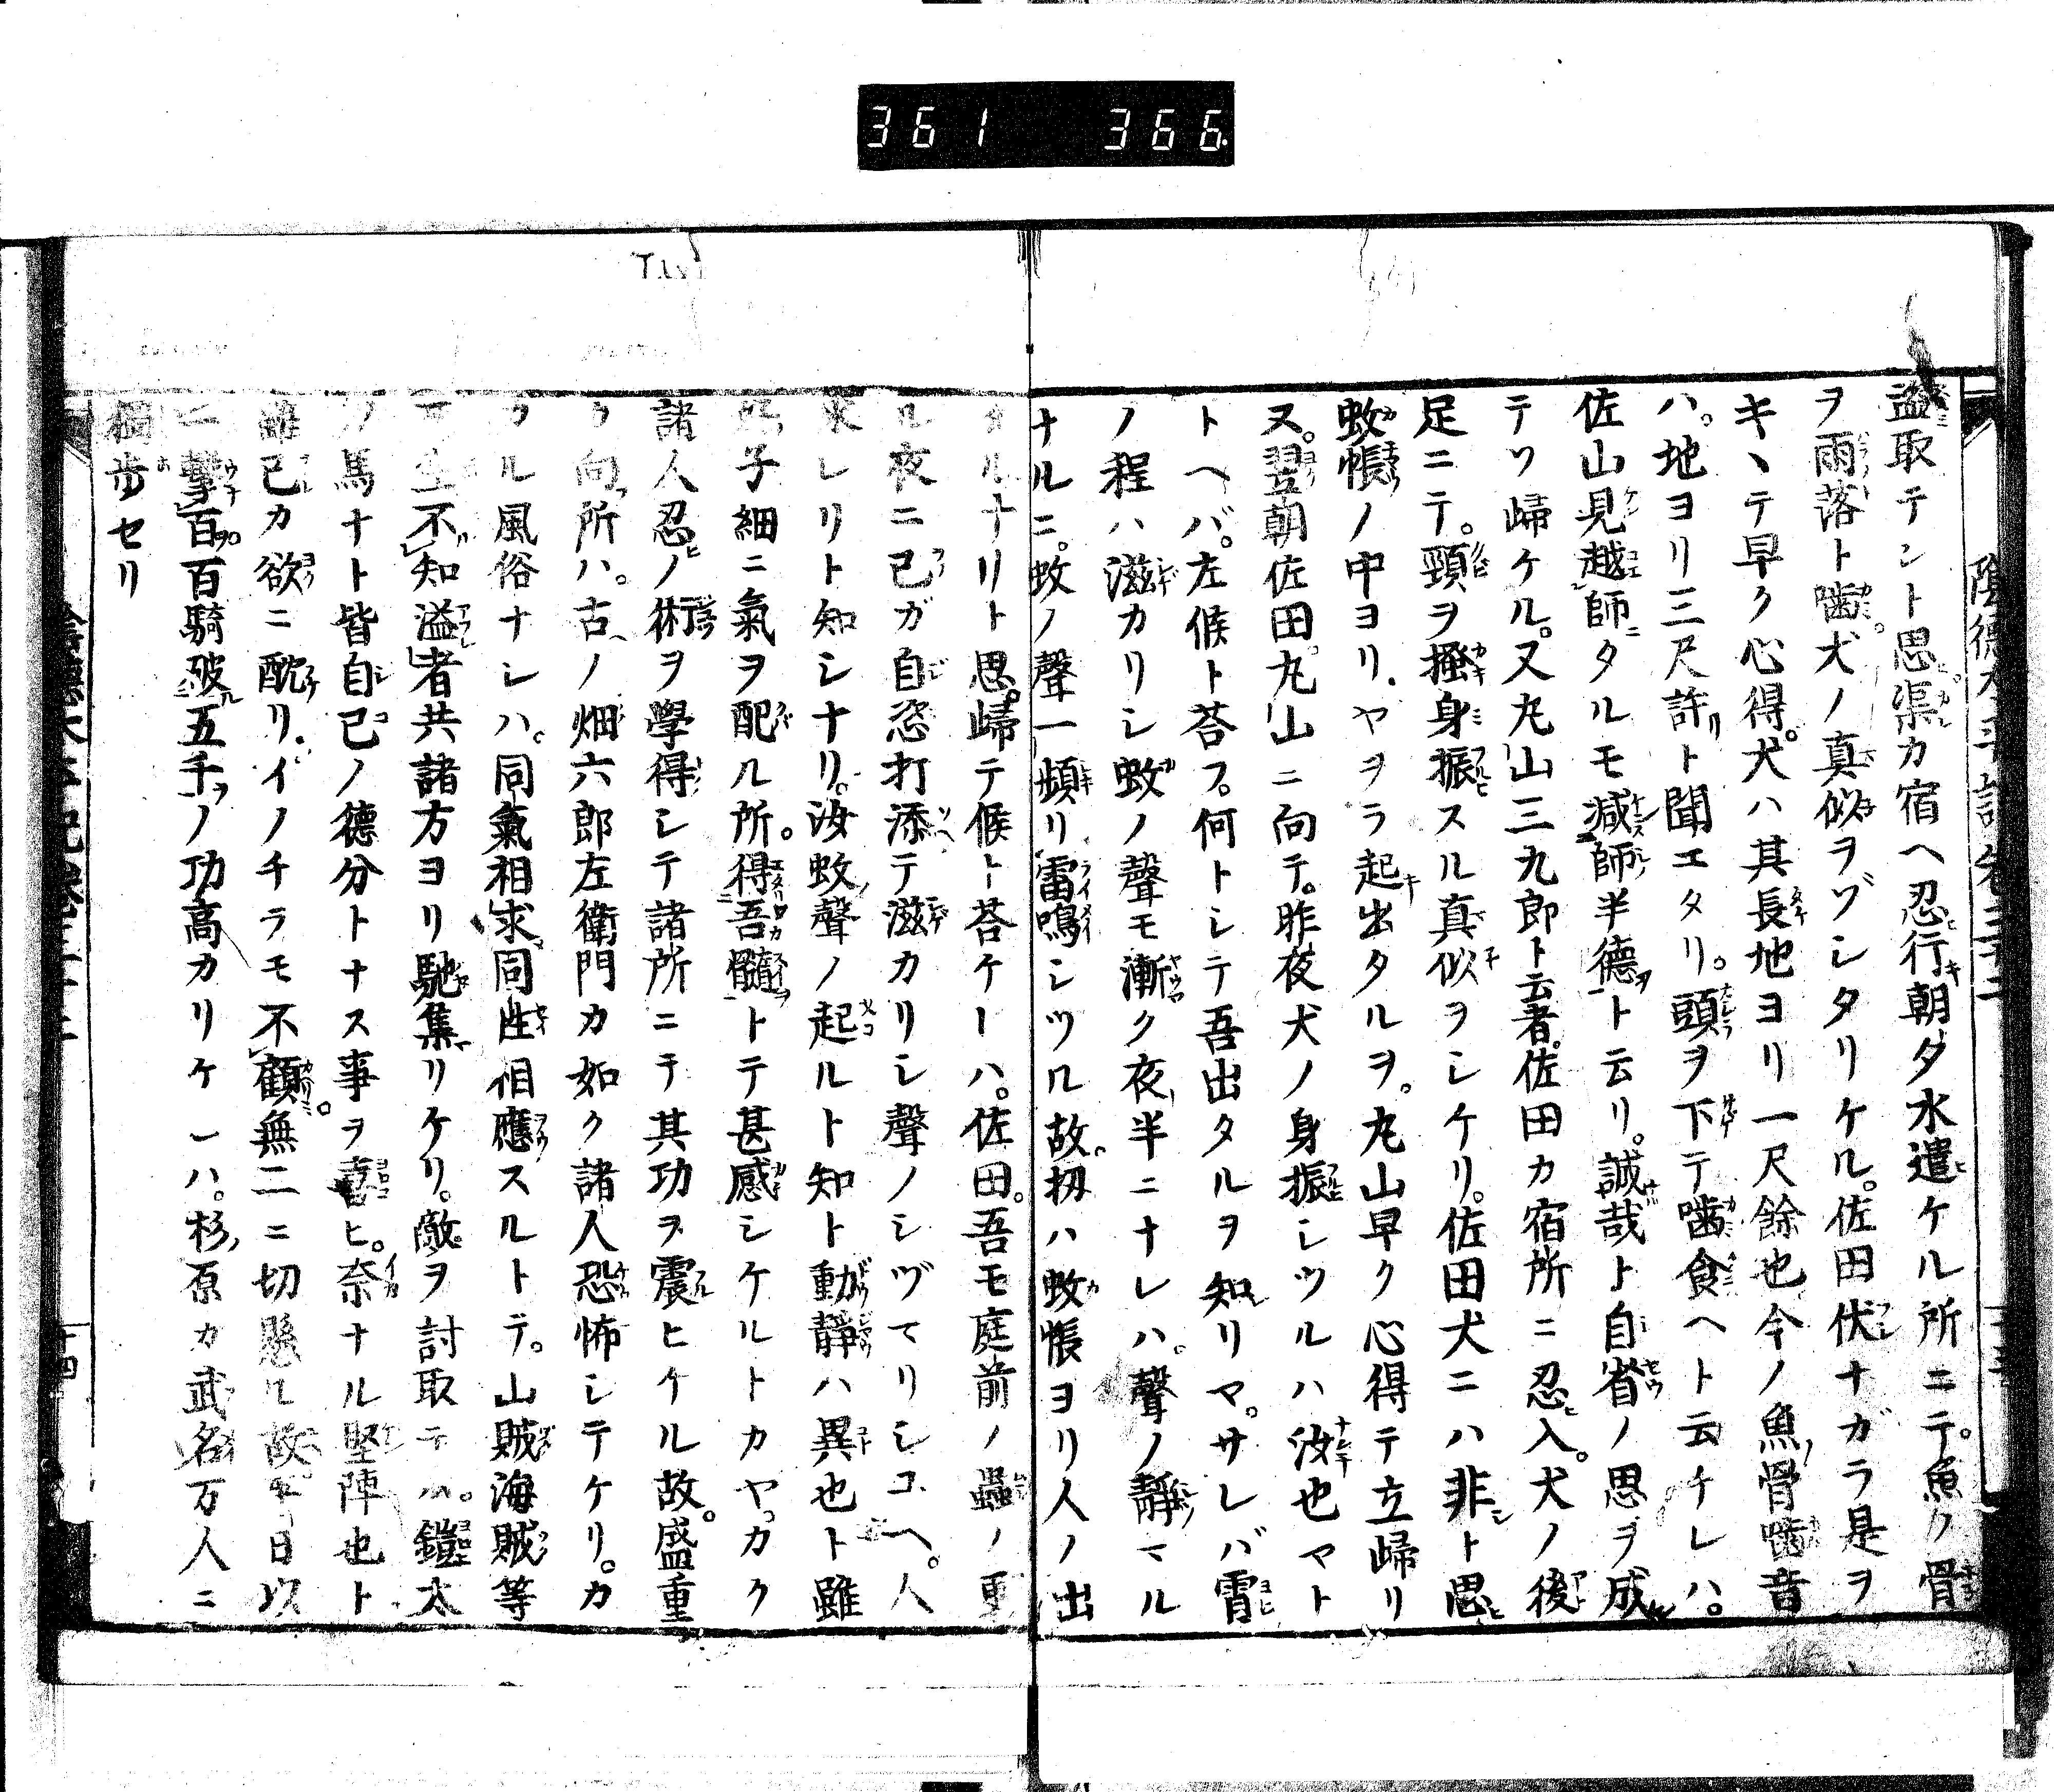 361 366
陰徳太平記巻三十二
盗取テント思渠カ宿ヘ忍行朝夕水遣ケル所ニテ。魚ノ骨
ヲ雨落ト噛。犬ノ真似ヲゾシタリケル。佐田伏ナガラ是ヲ
キヽテ早ク心得。犬ハ其長地ヨリ一尺餘也今ノ魚骨噛音
ハ。地ヨリ三尺許ト聞エタリ。頭ヲ下テ噛食ヘト云チレハ。
佐山見越師タルモ減師半徳ト云リ。誠哉ト自省ノ思ヲ成
テソ歸ケル。又丸山三九郎ト云者。佐田カ宿所ニ忍入。犬ノ後
足ニテ。頸ヲ掻身振スル真似ヲシケリ。佐田犬ニハ非ト思
蚊幮ノ中ヨリ。ヤヲラ起出タルヲ。丸山早ク心得テ立歸リ
ヌ。翌朝佐田。丸山ニ向テ。昨夜犬ノ身振シツルハ汝也マト
トヘバ。左候ト荅フ。何トシテ吾出タルヲ知リマ。サレバ宵
ノ程ハ滋カリシ蚊ノ聲モ漸ク夜半ニナレハ。聲ノ靜マル
ナルニ。蚊ノ聲一頻リ雷鳴シツル故。扨ハ蚊帳ヨリ人ノ出
タルナリト思。歸テ候ト荅ケーハ。佐田。吾モ庭前ノ蟲ノ重
ル夜ニ己ガ自恣打添テ滋カリシ聲ノシヅマリシコヘ。人
來レリト知シナリ。汝蚊聲ノ起ルト知ト動靜ハ異也ト雖
此子細ニ氣ヲ配ル所。得吾髓トテ甚感シケルトカヤ。カク
諸人忍ノ術ヲ學得シテ諸所ニテ其功ヲ震ヒケル故。盛重
カ向所ハ。古ノ畑六郎左衛門カ如ク諸人恐怖シテケリ。カ
ヽル風俗ナシハ。同氣相求同性相應スルトテ。山賊海賊等
ノ生不知溢者共諸方ヨリ馳集リケリ。敵ヲ討取テハ。鎧太
刀馬ナト皆自己ノ徳分トナス事ヲ喜ヒ。奈ナル堅陣也ト
雖己カ欲ニ酖リ。イノチラモ不顧。無二ニ切懸ル故
一撃百百騎破五千ノ功高カリケーハ。杉原カ武名万人ニ
獨歩セリ
十四